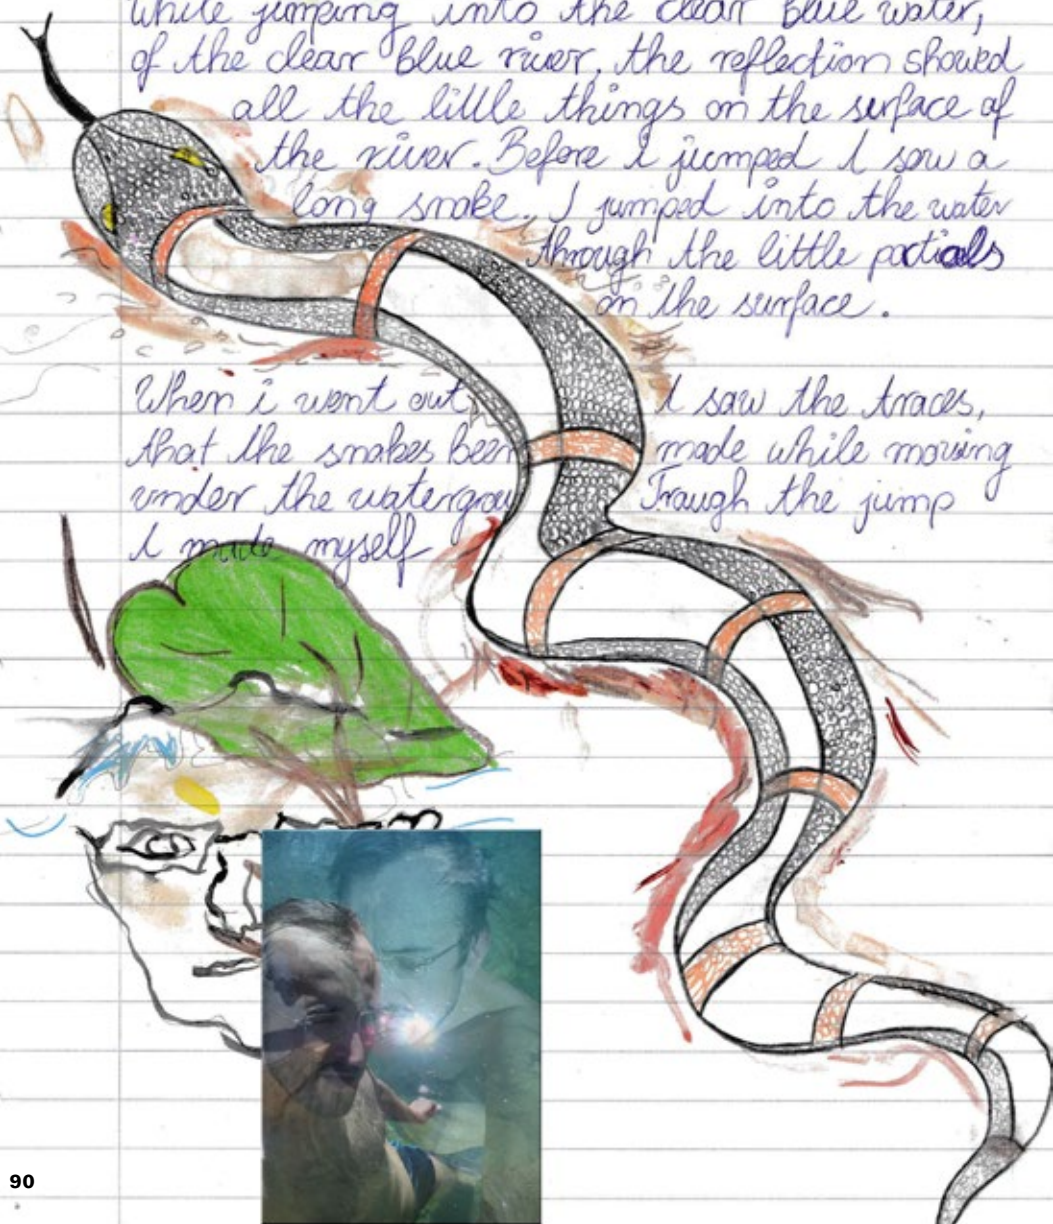 While jumping into the clear blue water,
of the clear blue river, the reflection showed
all the little things on the surface of
the river. Before i jumped I saw a
long snake. I jumped into the water
through the little particals
on the surface.
When i went out, I saw the traces,
that the snakes been made while moving
under the water Traugh the jump
I made myself
90